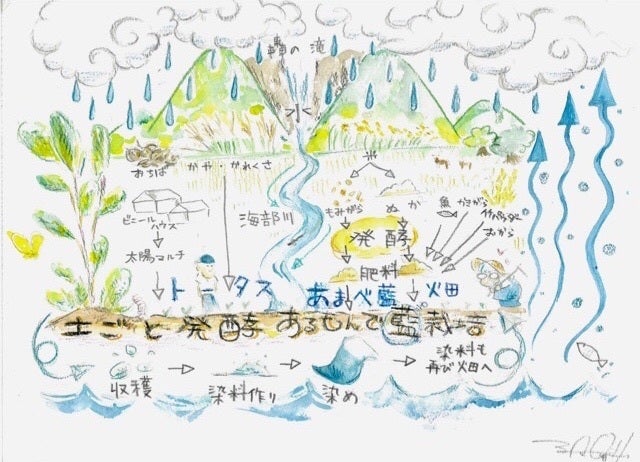 轟の滝
水
おちば
かや・かれくさ
米
ビニール
ハウス
太陽マルチ
海部川
もみがら
ぬか
魚
かきがら
竹パウダー
おから
発酵
肥料
トータス
あまべ藍
火田
土ごと発酵あるもんで藍栽培
収穫
染料作り
染め
染料も
再び畑へ